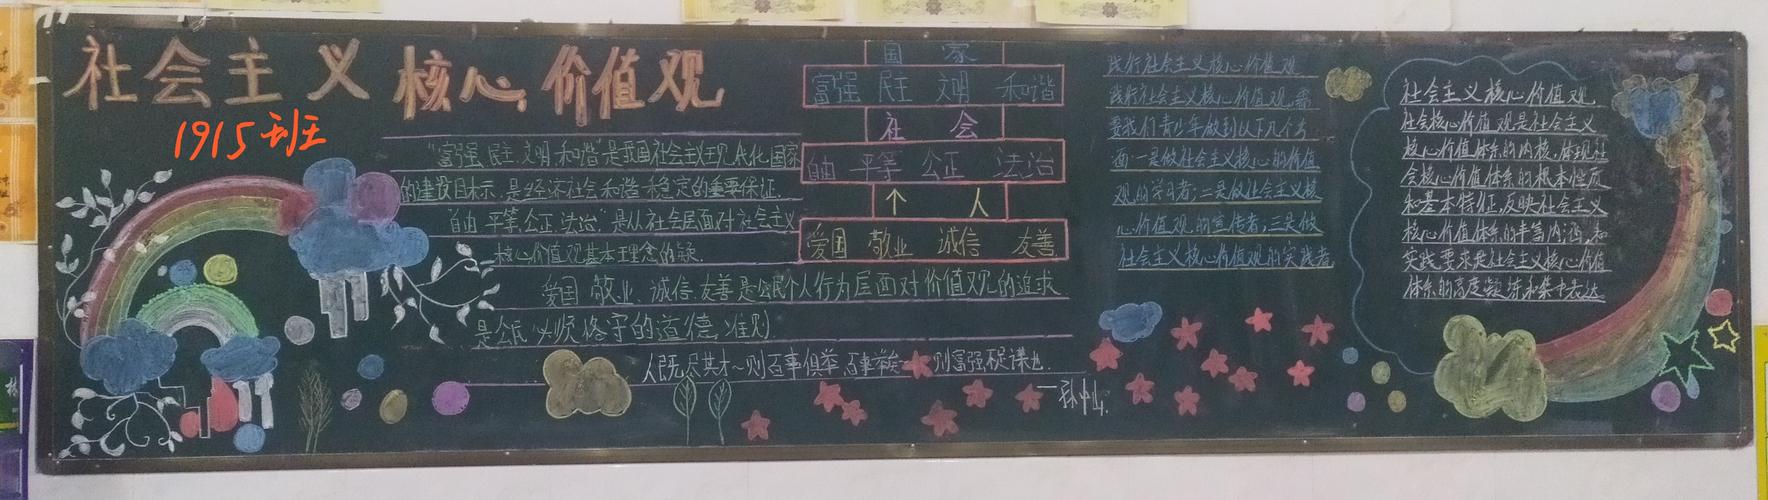 社会主义 核心价值观
1915班
"富强 民主 文明 和谐"是我国社会主义现代化国家
的建设目标，是经济社会和谐稳定的重要保证.
"自由 平等 公正 法治"是从社会层面对社会主义
核心价值观基本理念的凝
爱国 敬业、诚信、友善是公民个人行为层面对价值观的追求
是公民必须恪守的道德准则
人既尽其才～则百事俱举 百事举矣 则富强不足谋也.
—孙中山.
国 家
富强 民主 文明 和谐
社 会
自由 平等 公正 法治
个 人
爱国 敬业 诚信 友善
践行社会主义核心价值观
践行社会主义核心价值观，需
要我们青少年做到以下几个方
面：一是做社会主义核心的价值
观的学习者；二是做社会主义核
心价值观的宣传者，三是做
社会主义核心价值观的实践者
社会主义核心价值观
社会核心价值观是社会主义
核心价值体系的内核，体现社
会核心价值体系的根本性质
和基本特征，反映社会主义
核心价值体系的丰富内涵，和
实践要求是社会主义核心价值
体系的高度凝练和集中表达